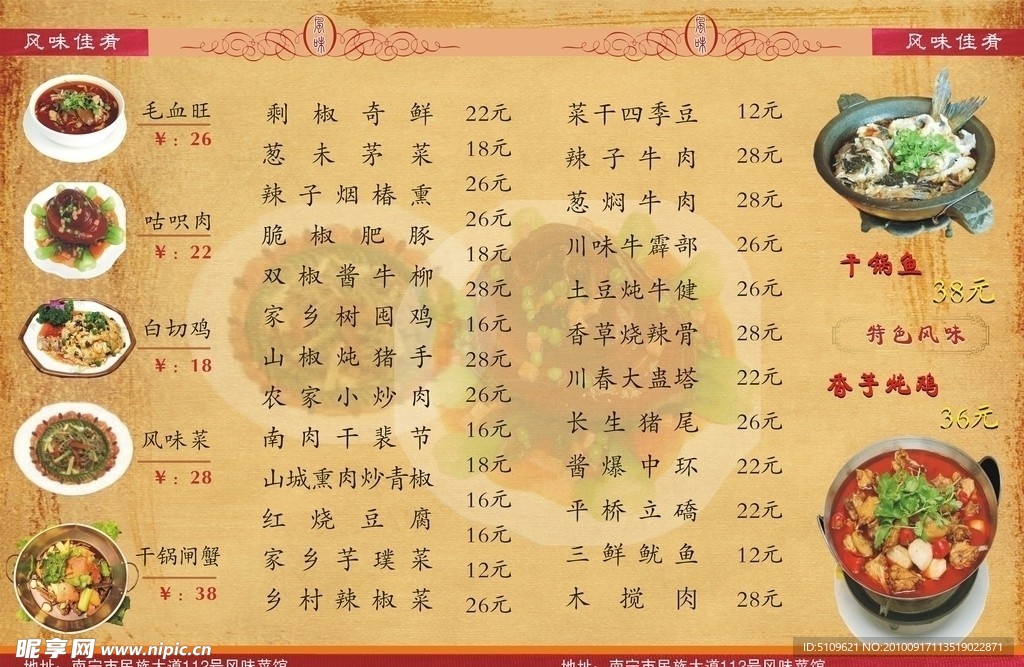 风味佳肴
风味
风味
风味佳肴
毛血旺
￥：26
咕呗肉
￥：22
白切鸡
￥：18
风味菜
￥：28
干锅闸蟹
￥：38
剩椒奇鲜 22元
葱未茅菜 18元
辣子烟椿熏 26元
脆椒肥豚 26元
双椒酱牛柳 18元
家乡树囤鸡 28元
山椒炖猪手 16元
农家小炒肉 28元
南肉干裴节 26元
山城熏肉炒青椒 16元
红烧豆腐 18元
家乡芋璞菜 16元
乡村辣椒菜 16元
12元
26元
菜干四季豆 12元
辣子牛肉 28元
葱焖牛肉 28元
川味牛霹部 26元
土豆炖牛健 26元
香草烧辣骨 28元
川春大蛊塔 22元
长生猪尾 26元
酱爆中环 22元
平桥立礄 22元
三鲜鱿鱼 12元
木搅肉 28元
干锅鱼
38元
特色风味
香芋炖鸡
36元
昵享网 www.nipic.cn
ID:5109621 NO:20100917113519022871
地址：南宁市民族大道112号风味菜馆
地址：南宁市民族大道112号风味菜馆